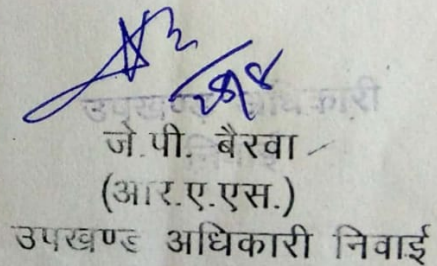 उपखण्ड अधिकारी
निवाई
जे.पी. बैरवा
(आर.ए.एस.)
उपखण्ड अधिकारी निवाई